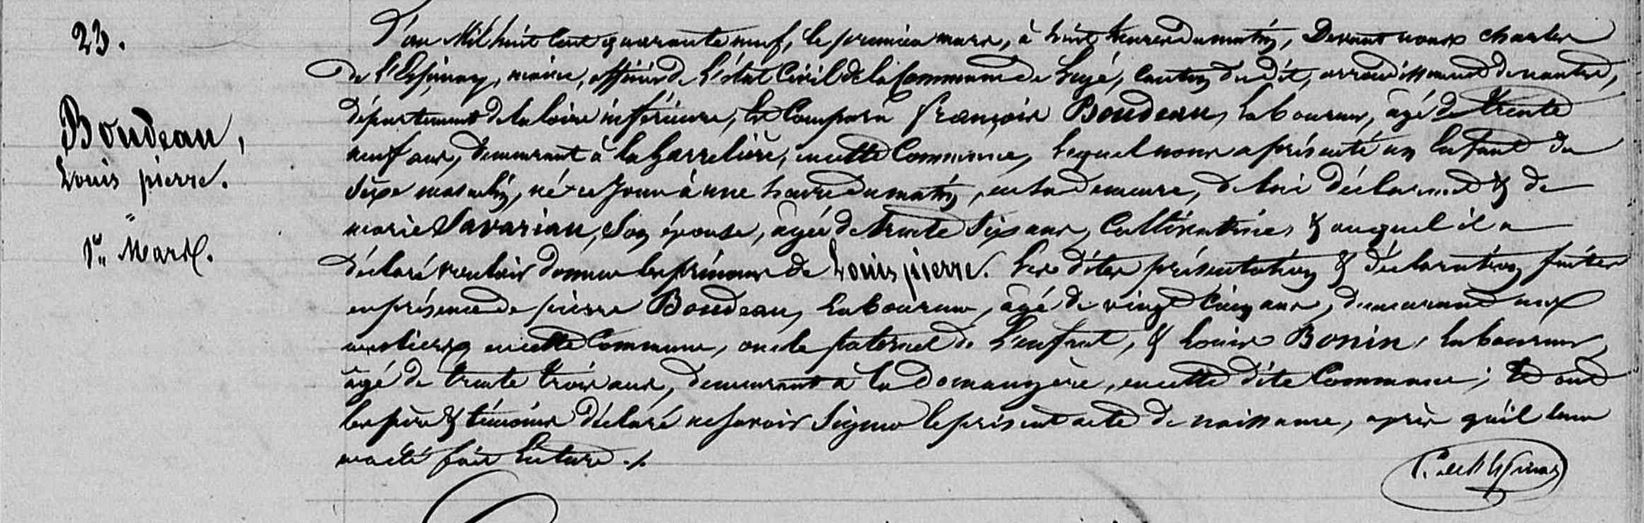 23.
Boudeau,
Louis pierre.
"
1er Mars.
L'an Mil huit Cent quarante neuf, le premier mars, à huit heures du matin, Devant nous Charles
de L'Espinay, maire, officier de L'état Civil de la Commune de Legé, Canton du dit, arrondissement de nantes,
département de la loire inférieure, Est Comparu françois Boudeau, Laboureur, âgé de trente
neuf ans, demeurant à la Garrelière, en cette Commune, Lequel nous a présenté un Enfant du
Sexe masculin, né ce Jour à une heure du matin, en sa demeure, de lui déclarant & de
marie Savariau, Son épouse, âgée de trente Six ans, Cultivatrice, & auquel il a
déclaré vouloir donner les prénoms de Louis pierre. Les dites présentation & déclaration faites
en présence de pierre Boudeau, Laboureur, âgé de vingt Cinq ans, demeurant aux
en cette Commune, oncle paternel de L'enfant, & Louis Bonin, laboureur,
âgé de trente trois ans, demeurant à la Domangère, en cette dite Commune; Et ont
les père & témoins déclaré ne savoir Signer le présent acte de naissance, après qu'il leur
en a été fait Lecture ./.
C. de L'Espinay